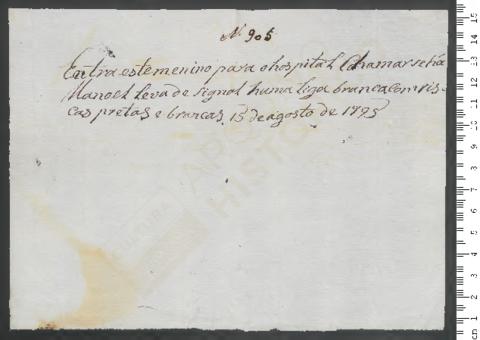 Nº 905
Entra este menino para o hospital Chamarseha
Manoel Leva de signal huma liga branca com ris-
cas pretas e brancas. 15 de agosto de 1795